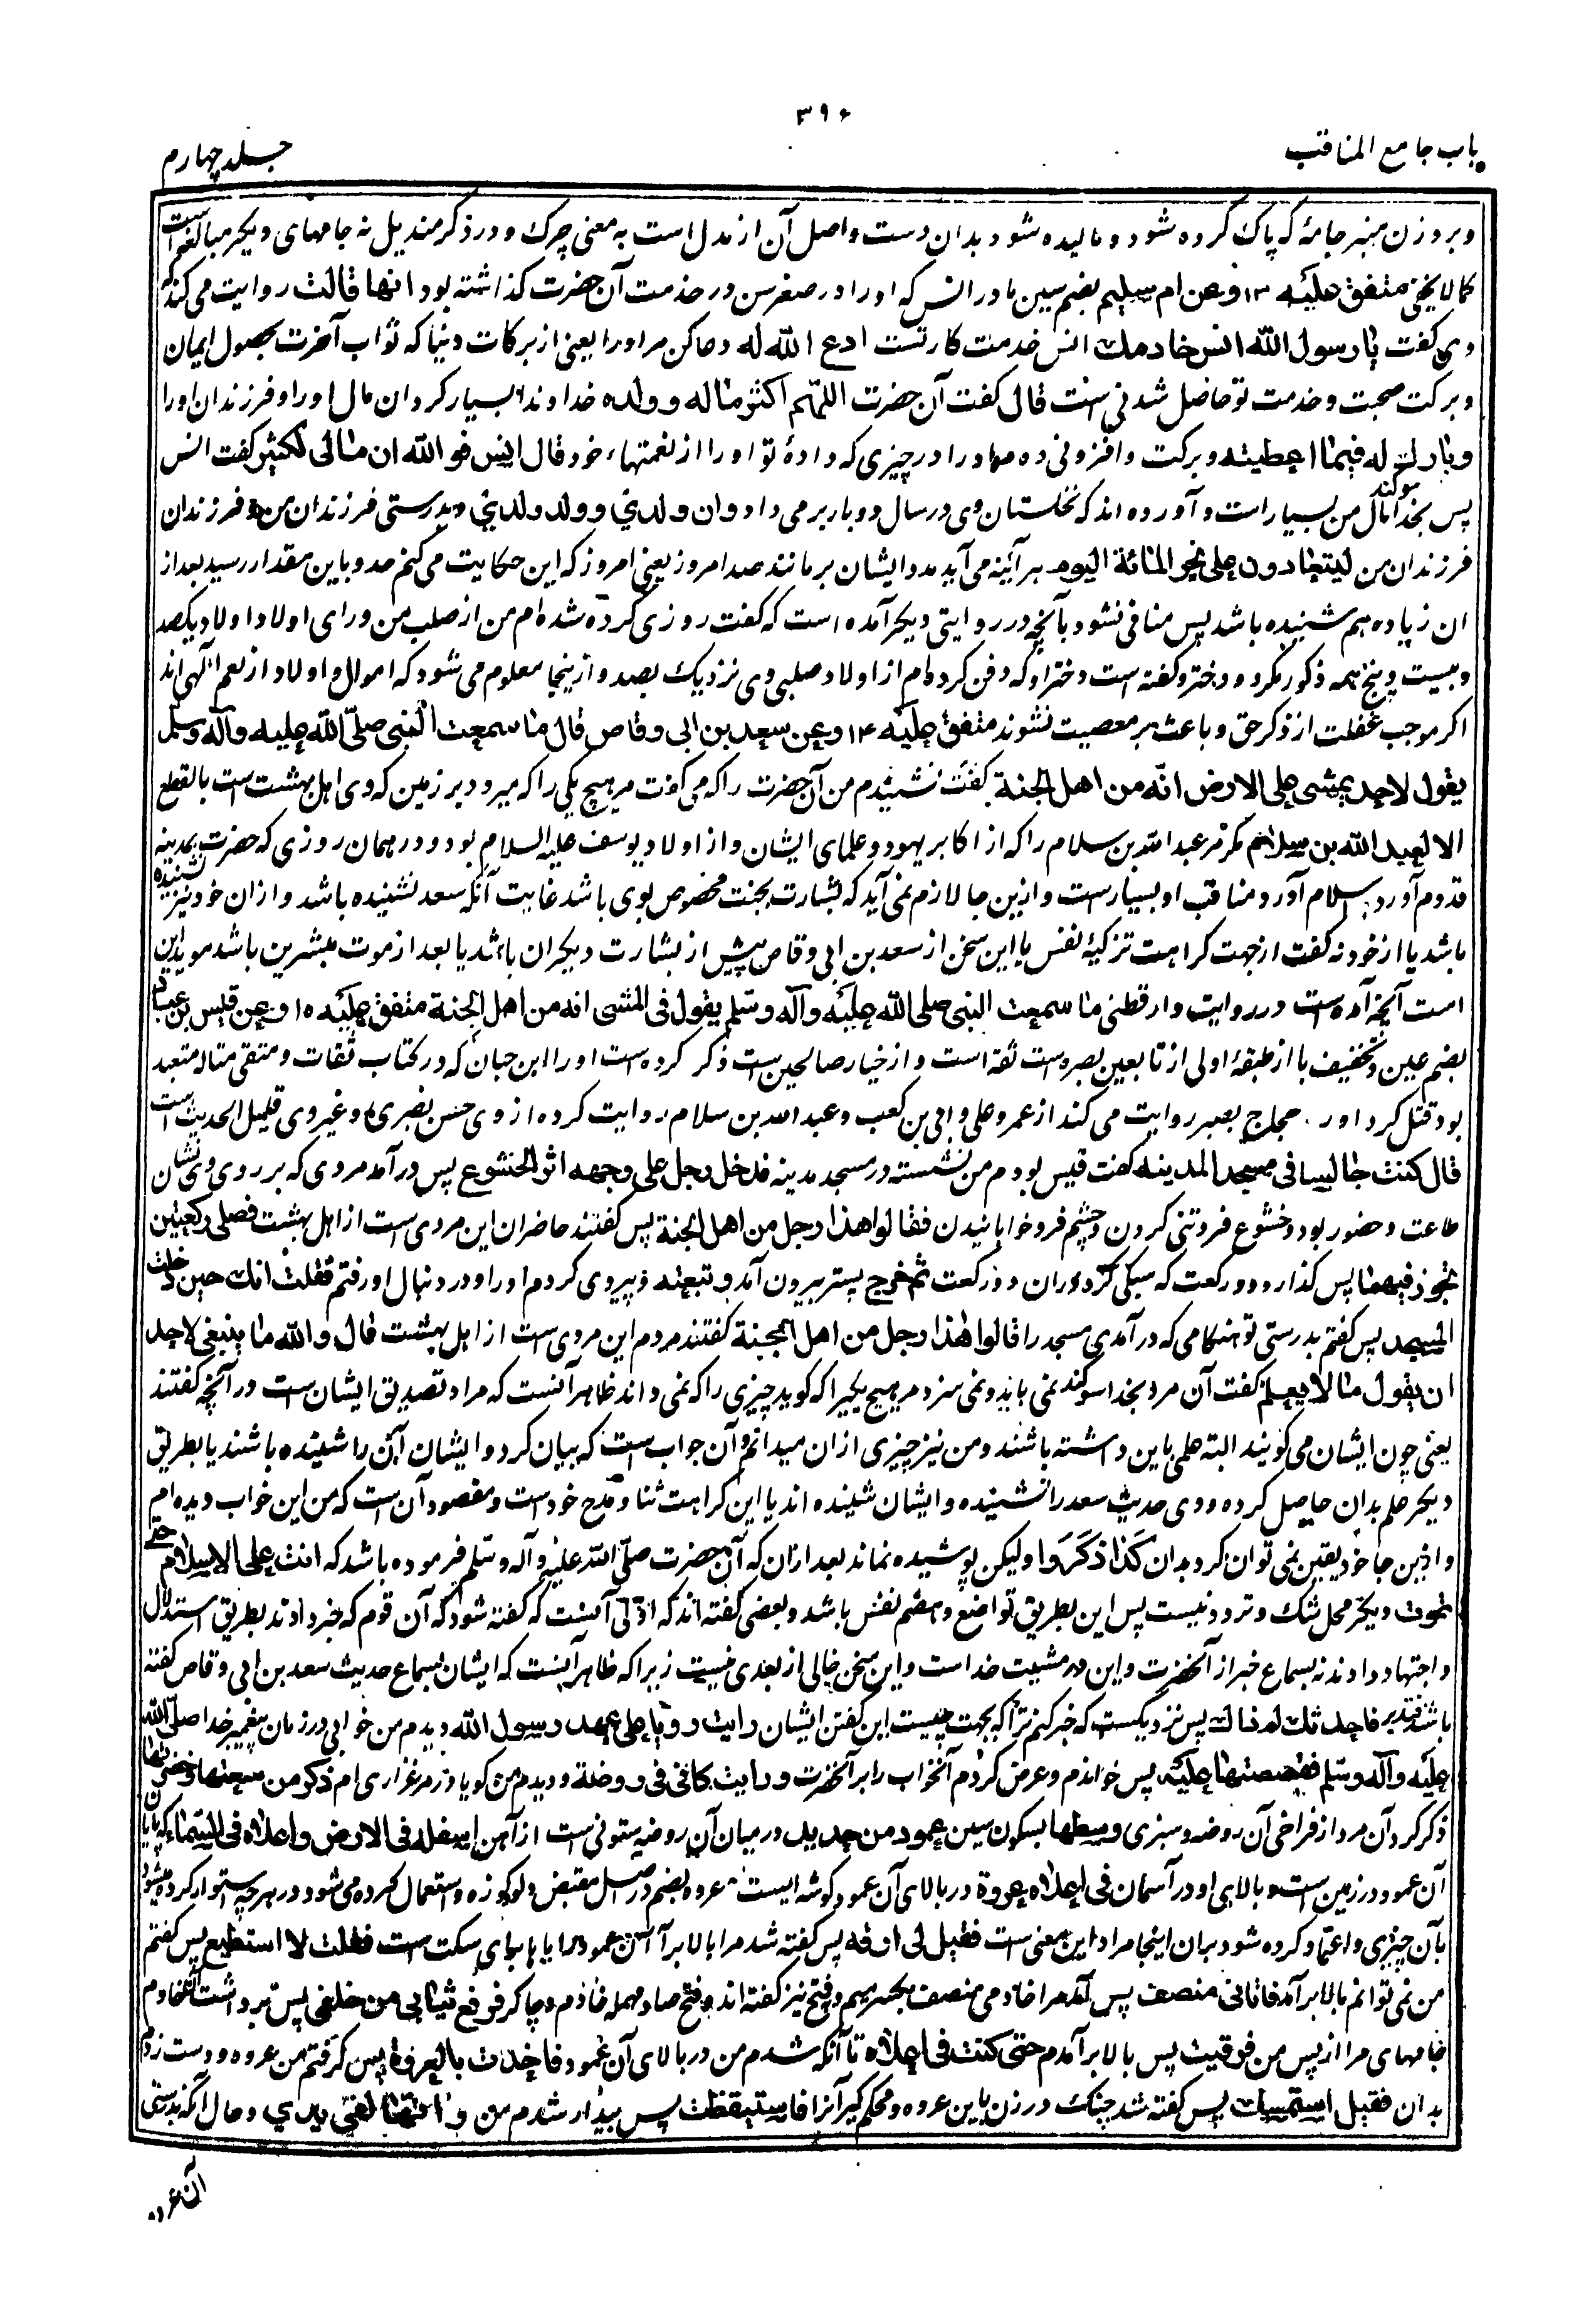 ۳۹۶
باب جامع المناقب
جلد چهارم
و بر وزن منبر جامۀ که پاک کرده شود و مالیده شود بدان دست و اصل آن از مدل است به معنی چرک و در ذکر مندیل نه جامهای دیگر مبالغه است
کما لا یخفی متفق علیه ۱۳ وعن ام سلیم بضم سین مادر انس که او را در صغر سن در خدمت آن حضرت گذاشته بود انها قالت روایت می کند که
وی گفت یا رسول الله انس خادمک انس خدمت کار تست ادع الله له دعا کن مر او را یعنی از برکات دنیا که ثواب آخرت بحصول ایمان
و برکت صحبت و خدمت تو حاصل شدنی است قال گفت آن حضرت اللهم اکثر ماله و ولده خداوندا بسیار گردان مال او را و فرزندان او را
وبارك له فیما اعطیته و برکت و افزونی ده مر او را در چیزی که دادۀ تو او را از نعمتهاء خود قال انس فو الله ان مالی لکثیر گفت انس
پس بخدا سوگند مال من بسیار است و آورده اند که نخلستان وی در سال دو بار بر می داد وان ولدی وولد ولدی و بدرستی فرزندان من و فرزندان
فرزندان من لیتعادون علی نحو المائة الیوم هر آئینه می آید عدد ایشان بر مانند صد امروز یعنی امروز که این حکایت می کنم عدد باین مقدار رسید بعد از
ان زیاده هم شنیده باشد پس منافی نشود بآنچه در روایتی دیگر آمده است که گفت روزی کرده شده ام من از صلب من ورای اولاد اولاد یکصد
و بیست و پنج همه ذکور مگر دو دختر و گفته است دختر او که دفن کرده ام از اولاد صلبی وی نزدیک بصد و ازینجا معلوم می شود که اموال و اولاد از نعم الهی اند
اگر موجب غفلت از ذکر حق و باعث بر معصیت نشوند متفق علیه ۱۴ وعن سعد بن ابی وقاص قال ما سمعت النبی صلی الله علیه وآله وسلم
یقول لاحد یمشی علی الارض انه من اهل الجنة گفت نشنیدم من آن حضرت را که می گفت مر هیچ یکی را که میرود بر زمین که وی اهل بهشت است بالقطع
الا لعبد الله بن سلام مگر مر عبد الله بن سلام را که از اکابر یهود و علمای ایشان و از اولاد یوسف علیه السلام بود و در همان روزی که حضرت بمدینه
قدوم آورد اسلام آورد و مناقب او بسیار است و ازین جا لازم نمی آید که بشارت بجنت مخصوص بوی باشد غایت آنکه سعد نشنیده باشد و ازان خود نیز نشنیده
باشد یا از خود نه گفت از جهت کراهت تزکیۀ نفس یا این سخن از سعد بن ابی وقاص پیش از بشارت دیگران باشد یا بعد از موت مبشرین باشد موید این
است آنچه آمده است در روایت دارقطنی ما سمعت النبی صلی الله علیه وآله وسلم یقول فی المشی انه من اهل الجنة متفق علیه ۱۵ وعن قیس بن عباد
بضم عین و تخفیف با از طبقۀ اولی از تابعین بصره است ثقه است و از خیار صالحین است ذکر کرده است او را ابن حبان که در کتاب ثقات و متقی متاله متعبد
بود قتل کرد او را حجاج بصبر روایت می کند از عمر و علی و ابی بن کعب و عبد الله بن سلام روایت کرده از وی حسن بصری و غیر وی قلیل الحدیث است
قال کنت جالسا فی مسجد المدینه گفت قیس بودم من نشسته در مسجد مدینه فدخل رجل علی وجهه اثر الخشوع پس در آمد مردی که بر روی وی نشان
طاعت و حضور بود و خشوع فروتنی کردن و چشم فرو خوابانیدن فقالوا هذا رجل من اهل الجنة پس گفتند حاضران این مردی است از اهل بهشت فصلی رکعتین
تجوز فیهما پس گذارد دو رکعت که سبکی کرد دران دو رکعت ثم خرج پستر بیرون آمد وتبعته و پیروی کردم او را و در دنبال او رفتم فقلت انك حین دخلت
المسجد پس گفتم بدرستی تو هنگامی که در آمدی مسجد را قالوا هذا رجل من اهل الجنة گفتند مردم این مردی است از اهل بهشت قال والله ما ینبغی لاحد
ان یقول ما لا یعلم گفت آن مرد بخدا سوگند نمی باید و نمی سزد مر هیچ یکیرا که گوید چیزی را که نمی داند ظاهر آنست که مراد تصدیق ایشان است در آنچه گفتند
یعنی چون ایشان می گویند البته علمی باین داشته باشند و من نیز چیزی ازان میدانم و آن جواب است که بیان کرد و ایشان آنرا شنیده باشند یا بطریق
دیگر علم بدان حاصل کرده و وی حدیث سعد را نشنیده و ایشان شنیده اند یا این کراهت ثنا و مدح خود است و مقصود آن است که من این خواب دیده ام
و ازین جا خود یقین نمی توان کرد بدان کذا ذکروا و لیکن پوشیده نماند بعد ازان که آن حضرت صلی الله علیه وآله وسلم فرموده باشد که انت علی الاسلام حتی
تموت دیگر محل شک و تردد نیست پس این بطریق تواضع و هضم نفس باشد و بعضی گفته اند که اولی آنست که گفته شود که آن قوم که خبر دادند بطریق استدلال
و اجتهاد دادند نه بسماع خبر از آنحضرت و این در مشیت خدا است و این سخن خالی از بعدی نیست زیرا که ظاهر آنست که ایشان بسماع حدیث سعد بن ابی وقاص گفته
باشند فتدبر فاحدثك لم ذاك پس نزدیکست که خبر کنم ترا که بجهت چیست این گفتن ایشان رایت رؤیا علی عهد رسول الله دیدم من خوابی در زمان پیغمبر خدا صلی الله
علیه وآله وسلم فقصصتها علیه پس خواندم و عرض کردم آنخواب را بر آنحضرت ورایت کانی فی روضة و دیدم من گویا در مرغزاری ام ذکر من سعتها وخضرتها
ذکر کرد آن مرد از فراخی آن روضه و سبزی وسطها بسکون سین عمود من حدید در میان آن روضه ستونی است از آهن اسفله فی الارض واعلاه فی السماء که پایان
آن عمود در زمین است و بالایی او در آسمان فی اعلاه عروة در بالای آن عمود گوشه ایست عروه بضم در اصل مقبض دلو و کوزه و استعمال کرده می شود در هر چه استوار کرده میشود
بآن چیزی و اعتماد کرده شود بران اینجا مراد این معنی است فقیل لی ارقه پس گفته شد مرا بالا برآ آن عمود را یا ها بجای سکت است فقلت لا استطیع پس گفتم
من نمی توانم بالا بر آمد فاتانی منصف پس آمد مرا خادمی منصف بکسر میم و فتح نیز گفته اند و فتح صاد مهمله خادم و چاکر فرفع ثیابی من خلفی پس برداشت آن خادم
جامهای مرا از پس من فرقیت پس بالا بر آمدم حتی کنت فی اعلاه تا آنکه شدم من در بالای آن عمود فاخذت بالعروة پس گرفتم من عروه و دست زدم
بدان فقیل استمسك پس گفته شد چنگ در زن باین عروه و محکم گیر آنرا فاستیقظت پس بیدار شدم من وانها لفی یدی و حال آنکه بدرستی
آن عروه